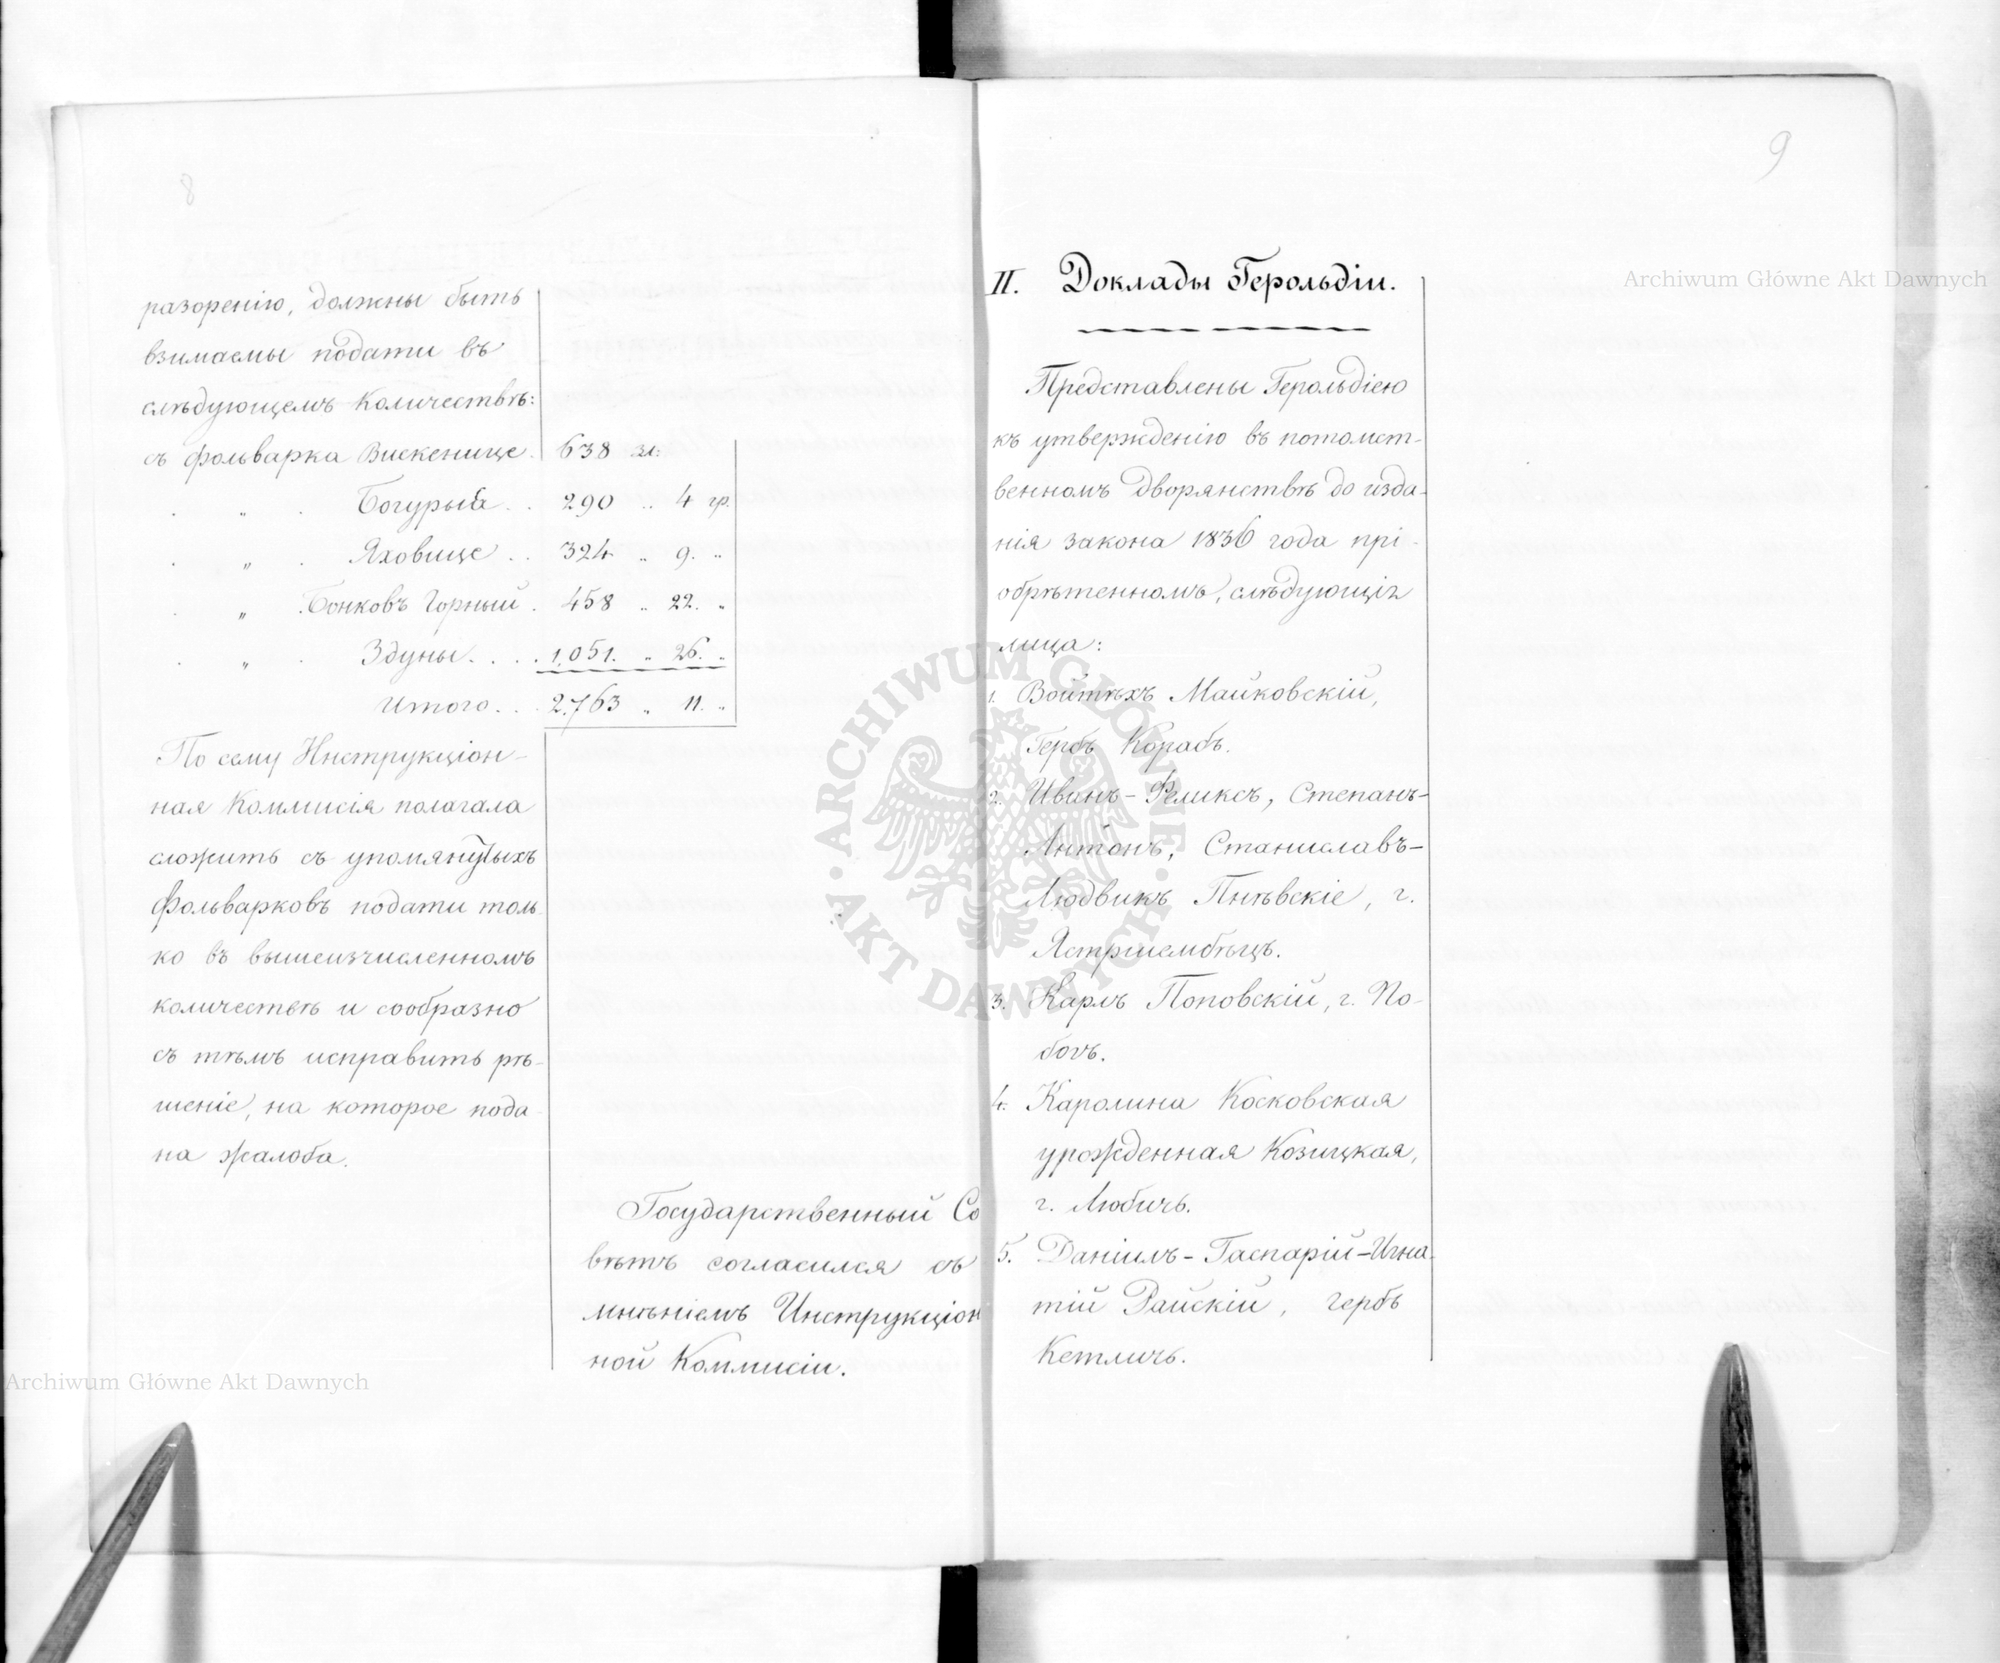 8
разоренію, должны быть
взимаемы подати въ
слѣдующемъ количествѣ:
съ фольварка Вискенице. 638 зл:
. „ . Богурыя . . 290 .. 4 гр.
. „ . Яховище . . 324 „ 9. „
. „ . Бонковъ Горный . 458 „ 22. „
. „ . Здуны . . . . 1,051. „ 26. „
Итого . . . 2,763 „ 11. „
По сему Инструкціон-
ная Коммисія полагала
сложить съ упомянутыхъ
фольварковъ подати толь
ко въ вышеизчисленномъ
количествѣ и сообразно
съ тѣмъ исправить рѣ-
шеніе, на которое пода-
на жалоба.
Государственный Со
вѣтъ согласился съ
мнѣніемъ Инструкціон
ной Коммисіи.
9
II. Доклады Герольдіи.
Представлены Герольдіею
къ утвержденію въ потомст-
венномъ дворянствѣ до изда-
нія закона 1836 года прі-
обрѣтенномъ, слѣдующія
лица:
1. Войтѣхъ Майковскій,
Гербъ Корабъ.
2. Иванъ-Феликсъ, Степанъ-
Антонъ, Станиславъ-
Людвикъ Пнѣвскіе, г.
Ястршембѣцъ.
3. Карлъ Поповскій, г. По-
богъ.
4. Каролина Косковская
урожденная Козицкая,
г. Любичъ.
5. Даніилъ-Гаспарій-Игна-
тій Райскій, гербъ
Кетличъ.
Archiwum Główne Akt Dawnych
Archiwum Główne Akt Dawnych
ARCHIWUM GŁÓWNE · AKT DAWNYCH ·